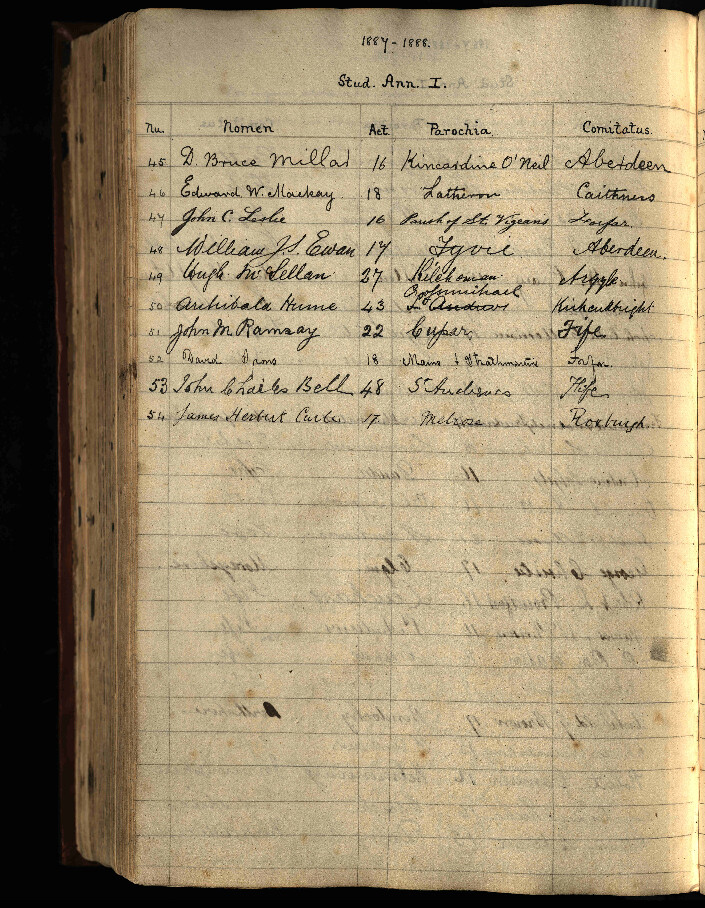 1887-1888.
Stud. Ann. I.
Nu. Nomen Aet. Parochia Comitatus.
45 D. Bruce Millar 16 Kincardine O'Neil Aberdeen
46 Edward W. Mackay 18 Latheron Caithness
47 John C. Leslie 16 Parish of St. Vigeans Forfar.
48 William J. S. Ewan 17 Fyvie Aberdeen.
49 Hugh McLellan 27 Kilchoman Argyle
Crossmichael
50 Archibald Hume 43 St Andrews Kirkcudbright
51 John M Ramsay 22 Cupar Fife
52 David 18 Mains & Strathmartine Forfar.
53 John Charles Bell 48 St Andrews Fife
54 James Herbert 17 Melrose Roxburgh.